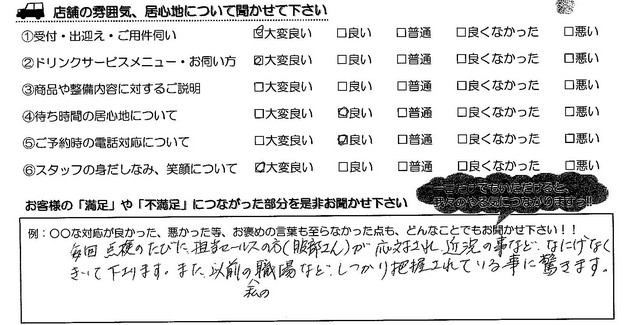 店舗の雰囲気、居心地について聞かせて下さい
①受付・出迎え・ご用件伺い ☑大変良い □良い □普通 □良くなかった □悪い
②ドリンクサービスメニュー・お伺い方 ☑大変良い □良い □普通 □良くなかった □悪い
③商品や整備内容に対するご説明 □大変良い □良い □普通 □良くなかった □悪い
④待ち時間の居心地について □大変良い ☑良い □普通 □良くなかった □悪い
⑤ご予約時の電話対応について □大変良い ☑良い □普通 □良くなかった □悪い
⑥スタッフの身だしなみ、笑顔について ☑大変良い □良い □普通 □良くなかった □悪い
一言だけでもいただけると、
我々のやる気につながります!!
お客様の「満足」や「不満足」につながった部分を是非お聞かせ下さい
例：〇〇な対応が良かった、悪かった等、お褒めの言葉も至らなかった点も、どんなことでもお聞かせ下さい！！
毎回 点検のたびに、担当セールスの方(服部さん)が応対され、近況の事など、なにげなく
きいて下さります。また、以前の職場など、しっかり把握されている事に驚きます。
私の